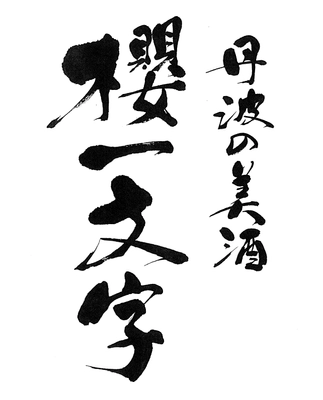 丹波の美酒
櫻一文字